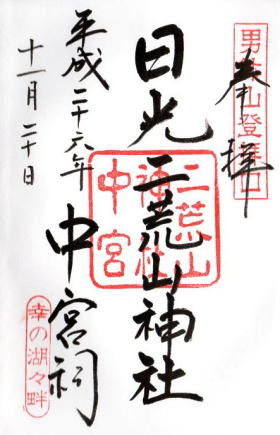 男体山登拝口
奉拝
日光二荒山神社
中宮祠
二荒山
神社
中宮
平成二十六年
十一月二十日
幸の湖々畔